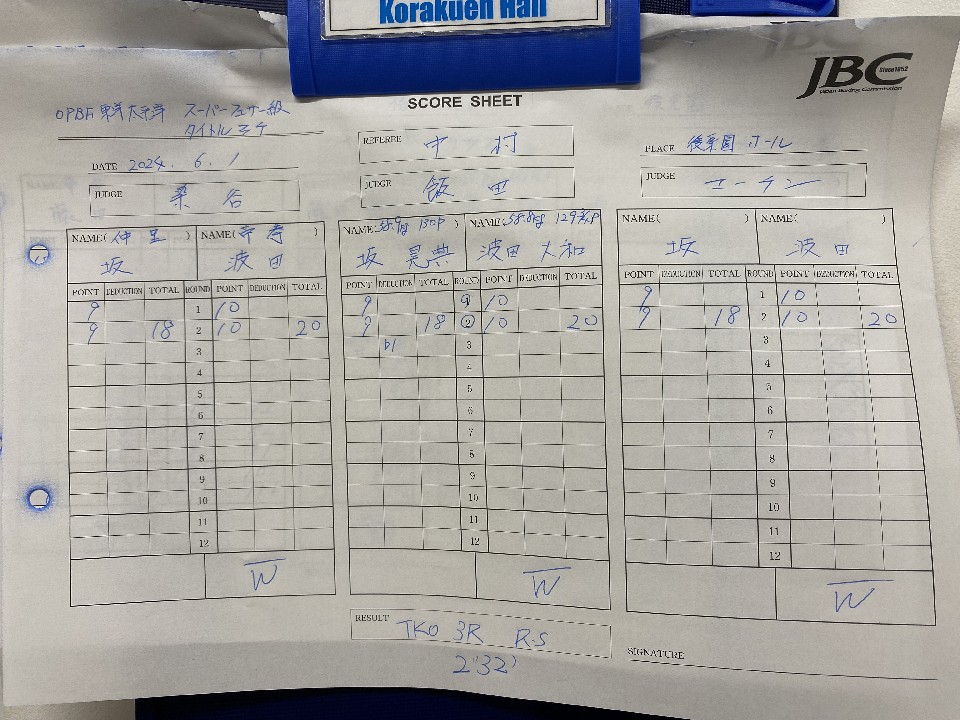 Korakuen Hall
JBC Since 1952
Japan Boxing Commission
SCORE SHEET
OPBF 東洋太平洋 スーパーフェザー級
タイトルマッチ
DATE 2024. 6. 1
REFEREE 中村
PLACE 後楽園ホール
JUDGE 染谷
JUDGE 飯田
JUDGE
NAME( 仲里 ) NAME( )
坂 波田
NAME( 58.9kg ) NAME( 58.8kg )
坂 晃典 波田 大和
NAME( ) NAME( )
坂 波田
POINT DEDUCTION TOTAL ROUND POINT DEDUCTION TOTAL
9 1 10
9 18 2 10 20
3
4
5
6
7
8
9
10
11
12
W
POINT DEDUCTION TOTAL ROUND POINT DEDUCTION TOTAL
9 1 10
9 18 2 10 20
3
4
5
6
7
8
9
10
11
12
W
POINT DEDUCTION TOTAL ROUND POINT DEDUCTION TOTAL
9 1 10
9 18 2 10 20
3
4
5
6
7
8
9
10
11
12
W
RESULT TKO 3R RS
2'32"
SIGNATURE